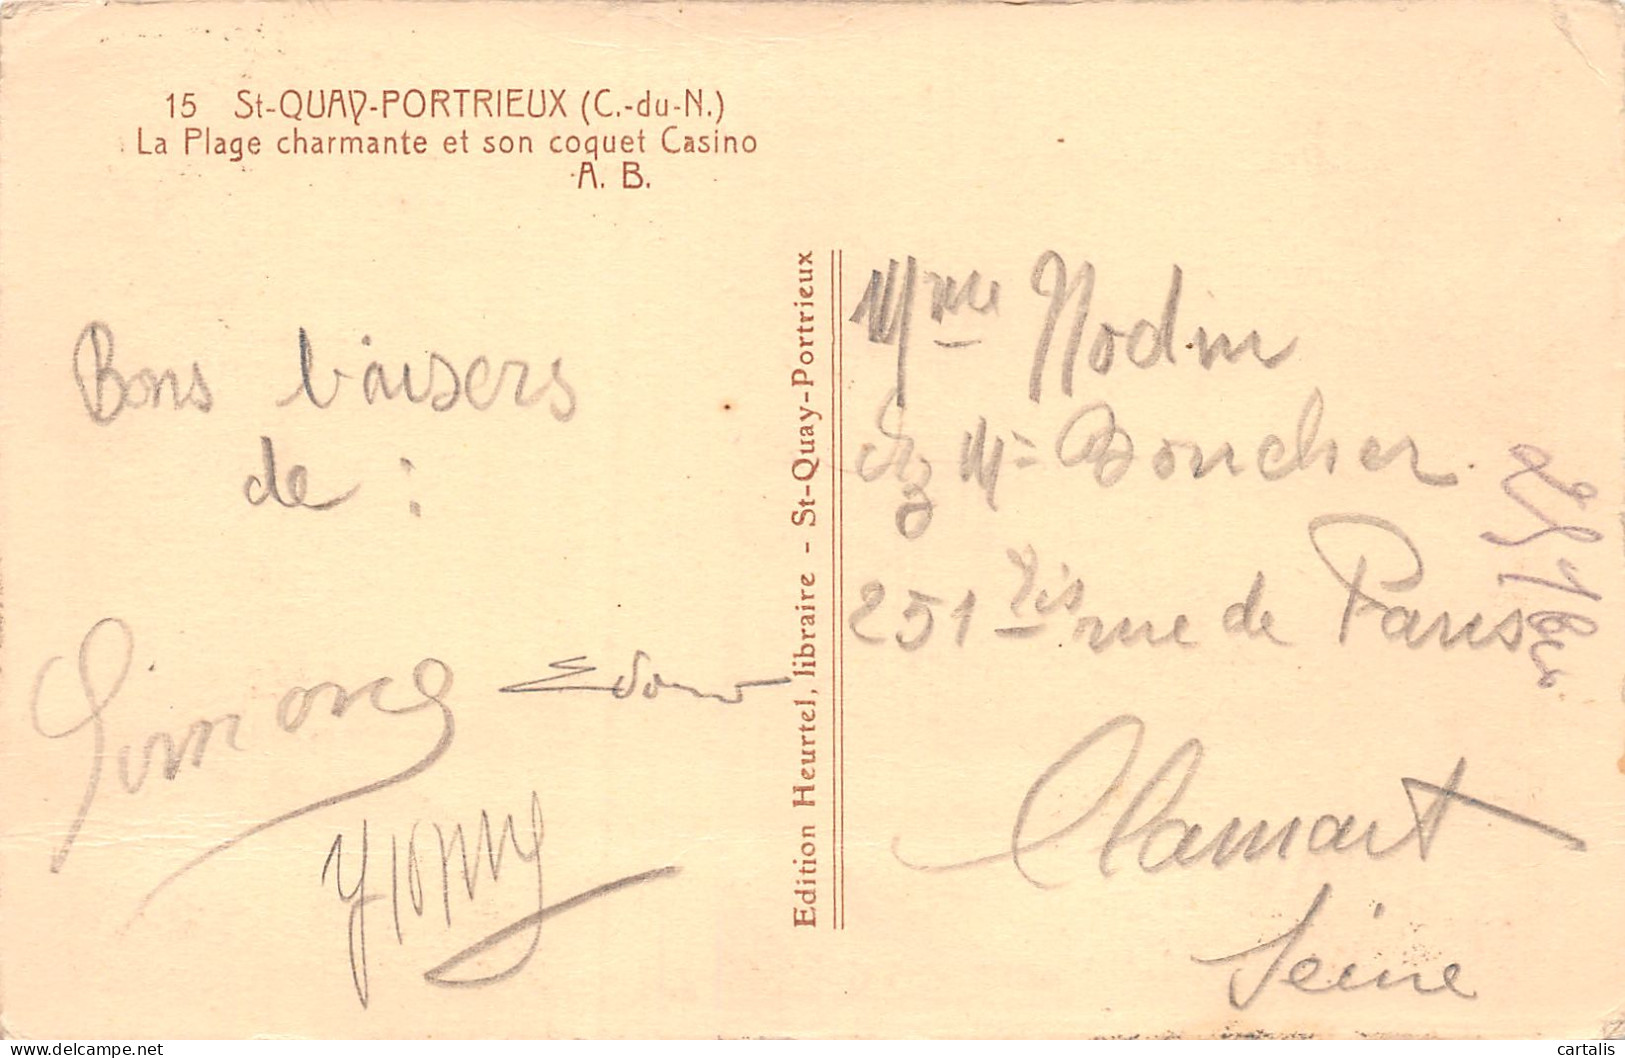 15 St-QUAY-PORTRIEUX (C.-du-N.)
La Plage charmante et son coquet Casino
A. B.
Bons baisers
de :
Simone
Yvonne
Edition Heurtel, libraire - St-Quay-Portrieux
Mme Nodin
chz Mr Boucher
251 bis rue de Paris
Clamart
Seine
cartalis